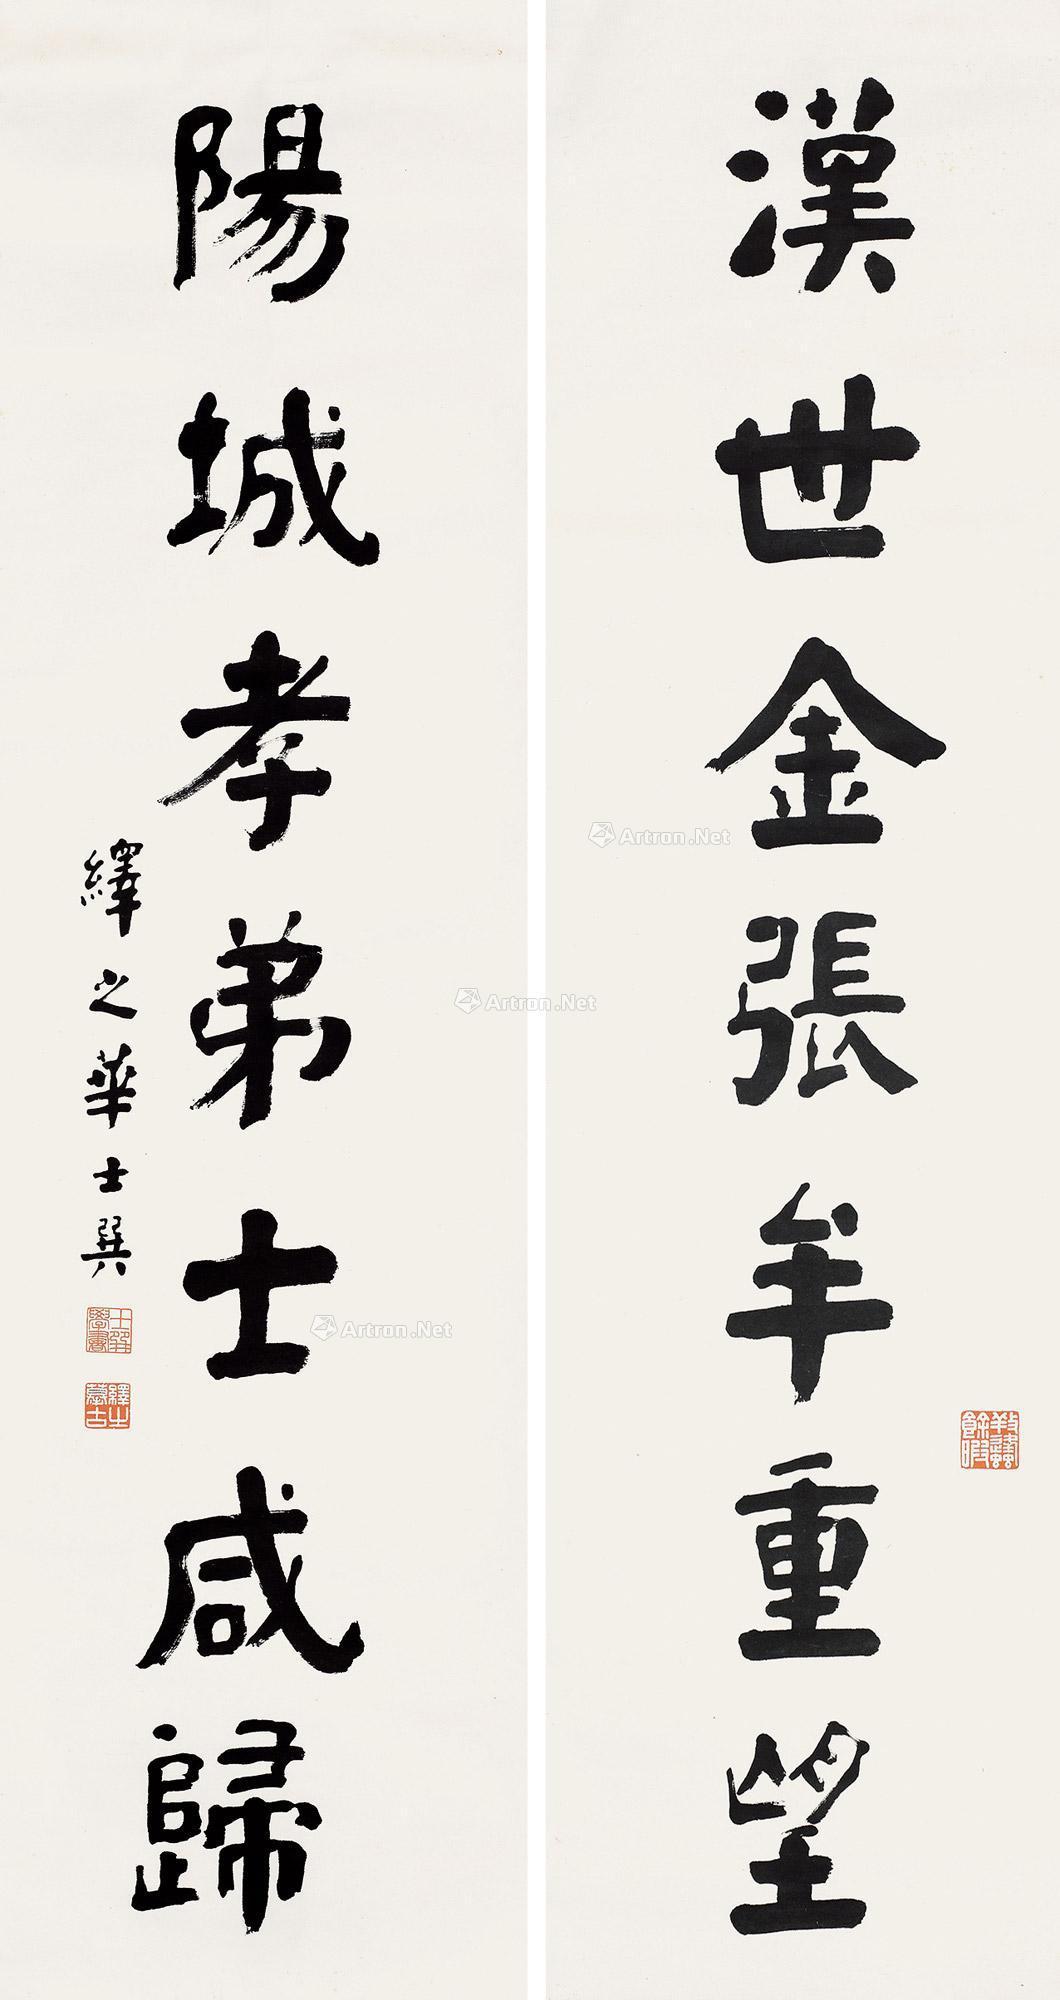 漢世金張牟重望
陽城孝弟士咸歸
繹之華士巽
士巽學書
繹之摹古
Artron.Net
Artron.Net
Artron.Net